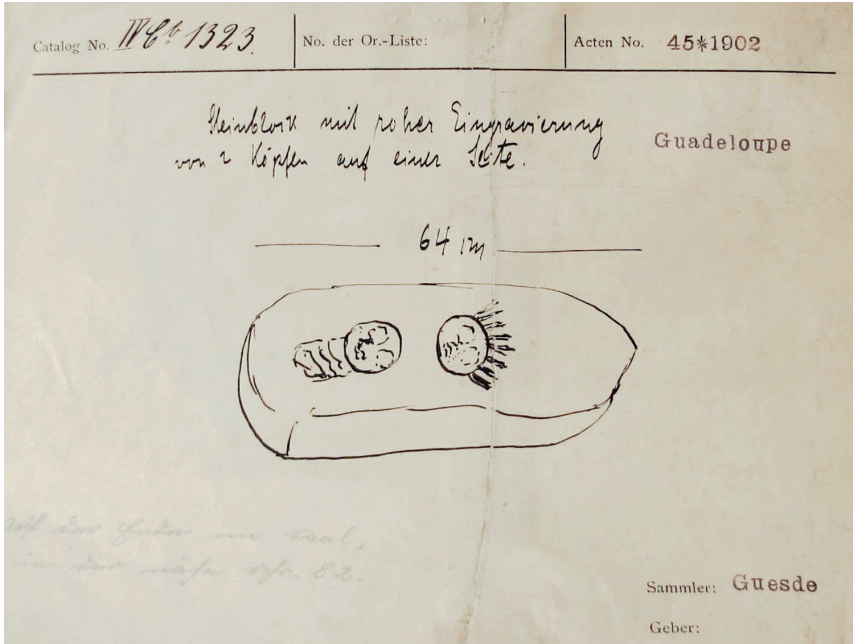 Catalog No. IV Cb 1323. No. der Or.-Liste: Acten No. 45*1902
Steinblock mit roher Eingravierung
von 2 Köpfen auf einer Seite.
Guadeloupe
64 cm
Auf der Erde im Saal,
in der nähe Schr. 82.
Sammler: Guesde
Geber: